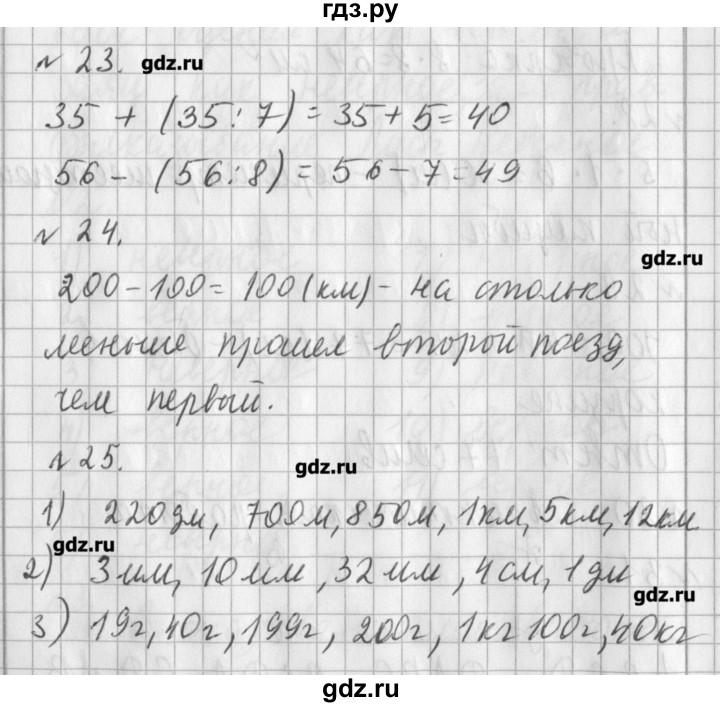 гдз.ру
№ 23. gdz.ru
35 + (35:7) = 35 + 5 = 40
56 - (56:8) = 56 - 7 = 49
№ 24.
gdz.ru
200 - 100 = 100 (км) - на столько
меньше прошел второй поезд,
чем первый.
№ 25. gdz.ru
1) 220 дм, 700 м, 850 м, 1 км, 5 км, 12 км
gdz.ru
2) 3 мм, 10 мм, 32 мм, 4 см, 1 дм
gdz.ru
3) 19 г, 40 г, 199 г, 200 г, 1 кг 100 г, 40 кг
gdz.ru